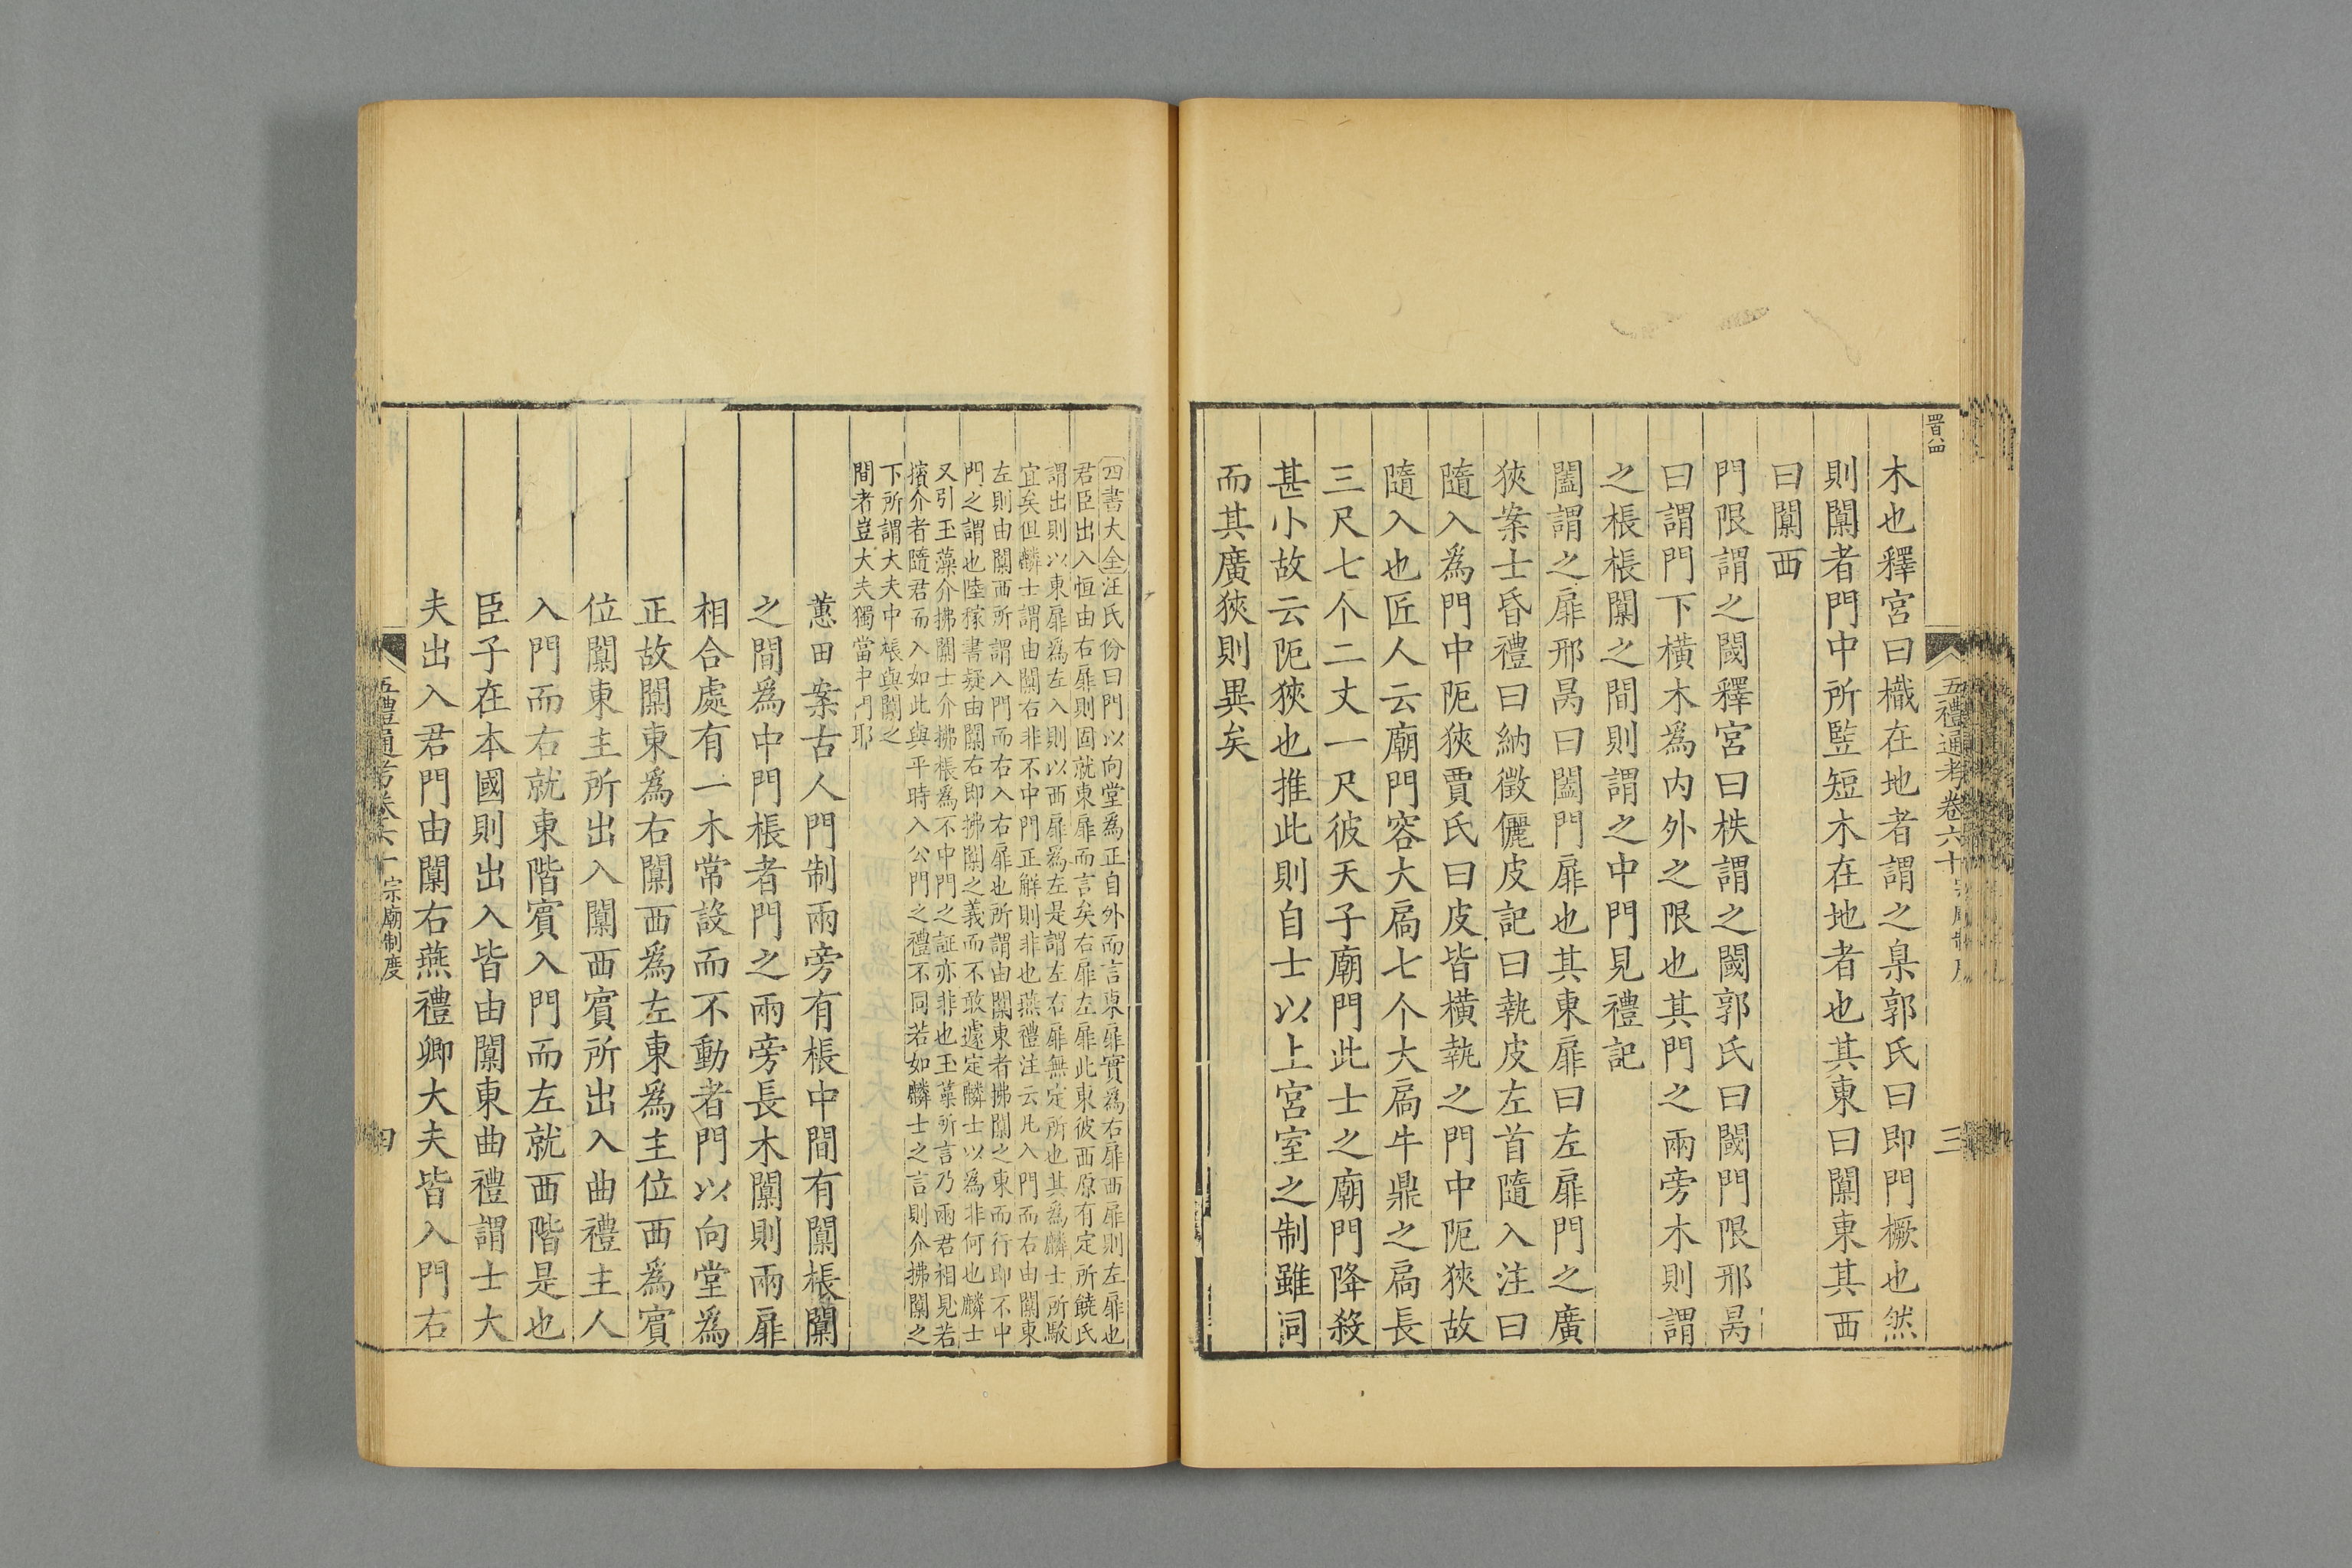 五禮通考卷六十
三
木也釋宮曰樴在地者謂之臬郭氏曰即門橛也然
則闑者門中所竪短木在地者也其東曰闑東其西
曰闑西
門限謂之閾釋宮曰柣謂之閾郭氏曰閾門限邢昺
曰謂門下橫木爲内外之限也其門之兩旁木則謂
之棖棖闑之間則謂之中門見禮記
闔謂之扉邢昺曰闔門扉也其東扉曰左扉門之廣
狹案士昏禮曰納徵儷皮記曰執皮左首隨入注曰
隨入爲門中阨狹賈氏曰皮皆橫執之門中阨狹故
隨入也匠人云廟門容大扃七个大扃牛鼎之扃長
三尺七个二丈一尺彼天子廟門此士之廟門降殺
甚小故云阨狹也推此則自士以上宮室之制雖同
而其廣狹則異矣
四書大全汪氏份曰門以向堂為正自外而言東扉實為右扉西扉則左扉也
君臣出入恒由右扉則固就東扉而言矣右扉左扉此東彼西原有定所饒氏
謂出則以東扉為左入則以西扉為左是謂左右扉無定所也其為麟士所駁
宜矣但麟士謂由闑右非不中門正解則非也燕禮注云凡入門而右由闑東
左則由闑西所謂入門而右入右扉也所謂由闑東者拂闑之東而行即不中
門之謂也陸稼書疑由闑右即拂闑之義而不敢遽定麟士以為非何也麟士
又引玉藻介拂闑士介拂棖為不中門之証亦非也玉藻所言乃兩君相見若
擯介者隨君而入如此與平時入公門之禮不同若如麟士之言則介拂闑之
下所謂大夫中棖與闑之
間者豈大夫獨當中門耶
蕙田案古人門制兩旁有棖中間有闑棖闑
之間爲中門棖者門之兩旁長木闑則兩扉
相合處有一木常設而不動者門以向堂爲
正故闑東爲右闑西爲左東爲主位西爲賓
位闑東主所出入闑西賓所出入曲禮主人
入門而右就東階賓入門而左就西階是也
臣子在本國則出入皆由闑東曲禮謂士大
夫出入君門由闑右燕禮卿大夫皆入門右
五禮通考卷六十 宗廟制度
四